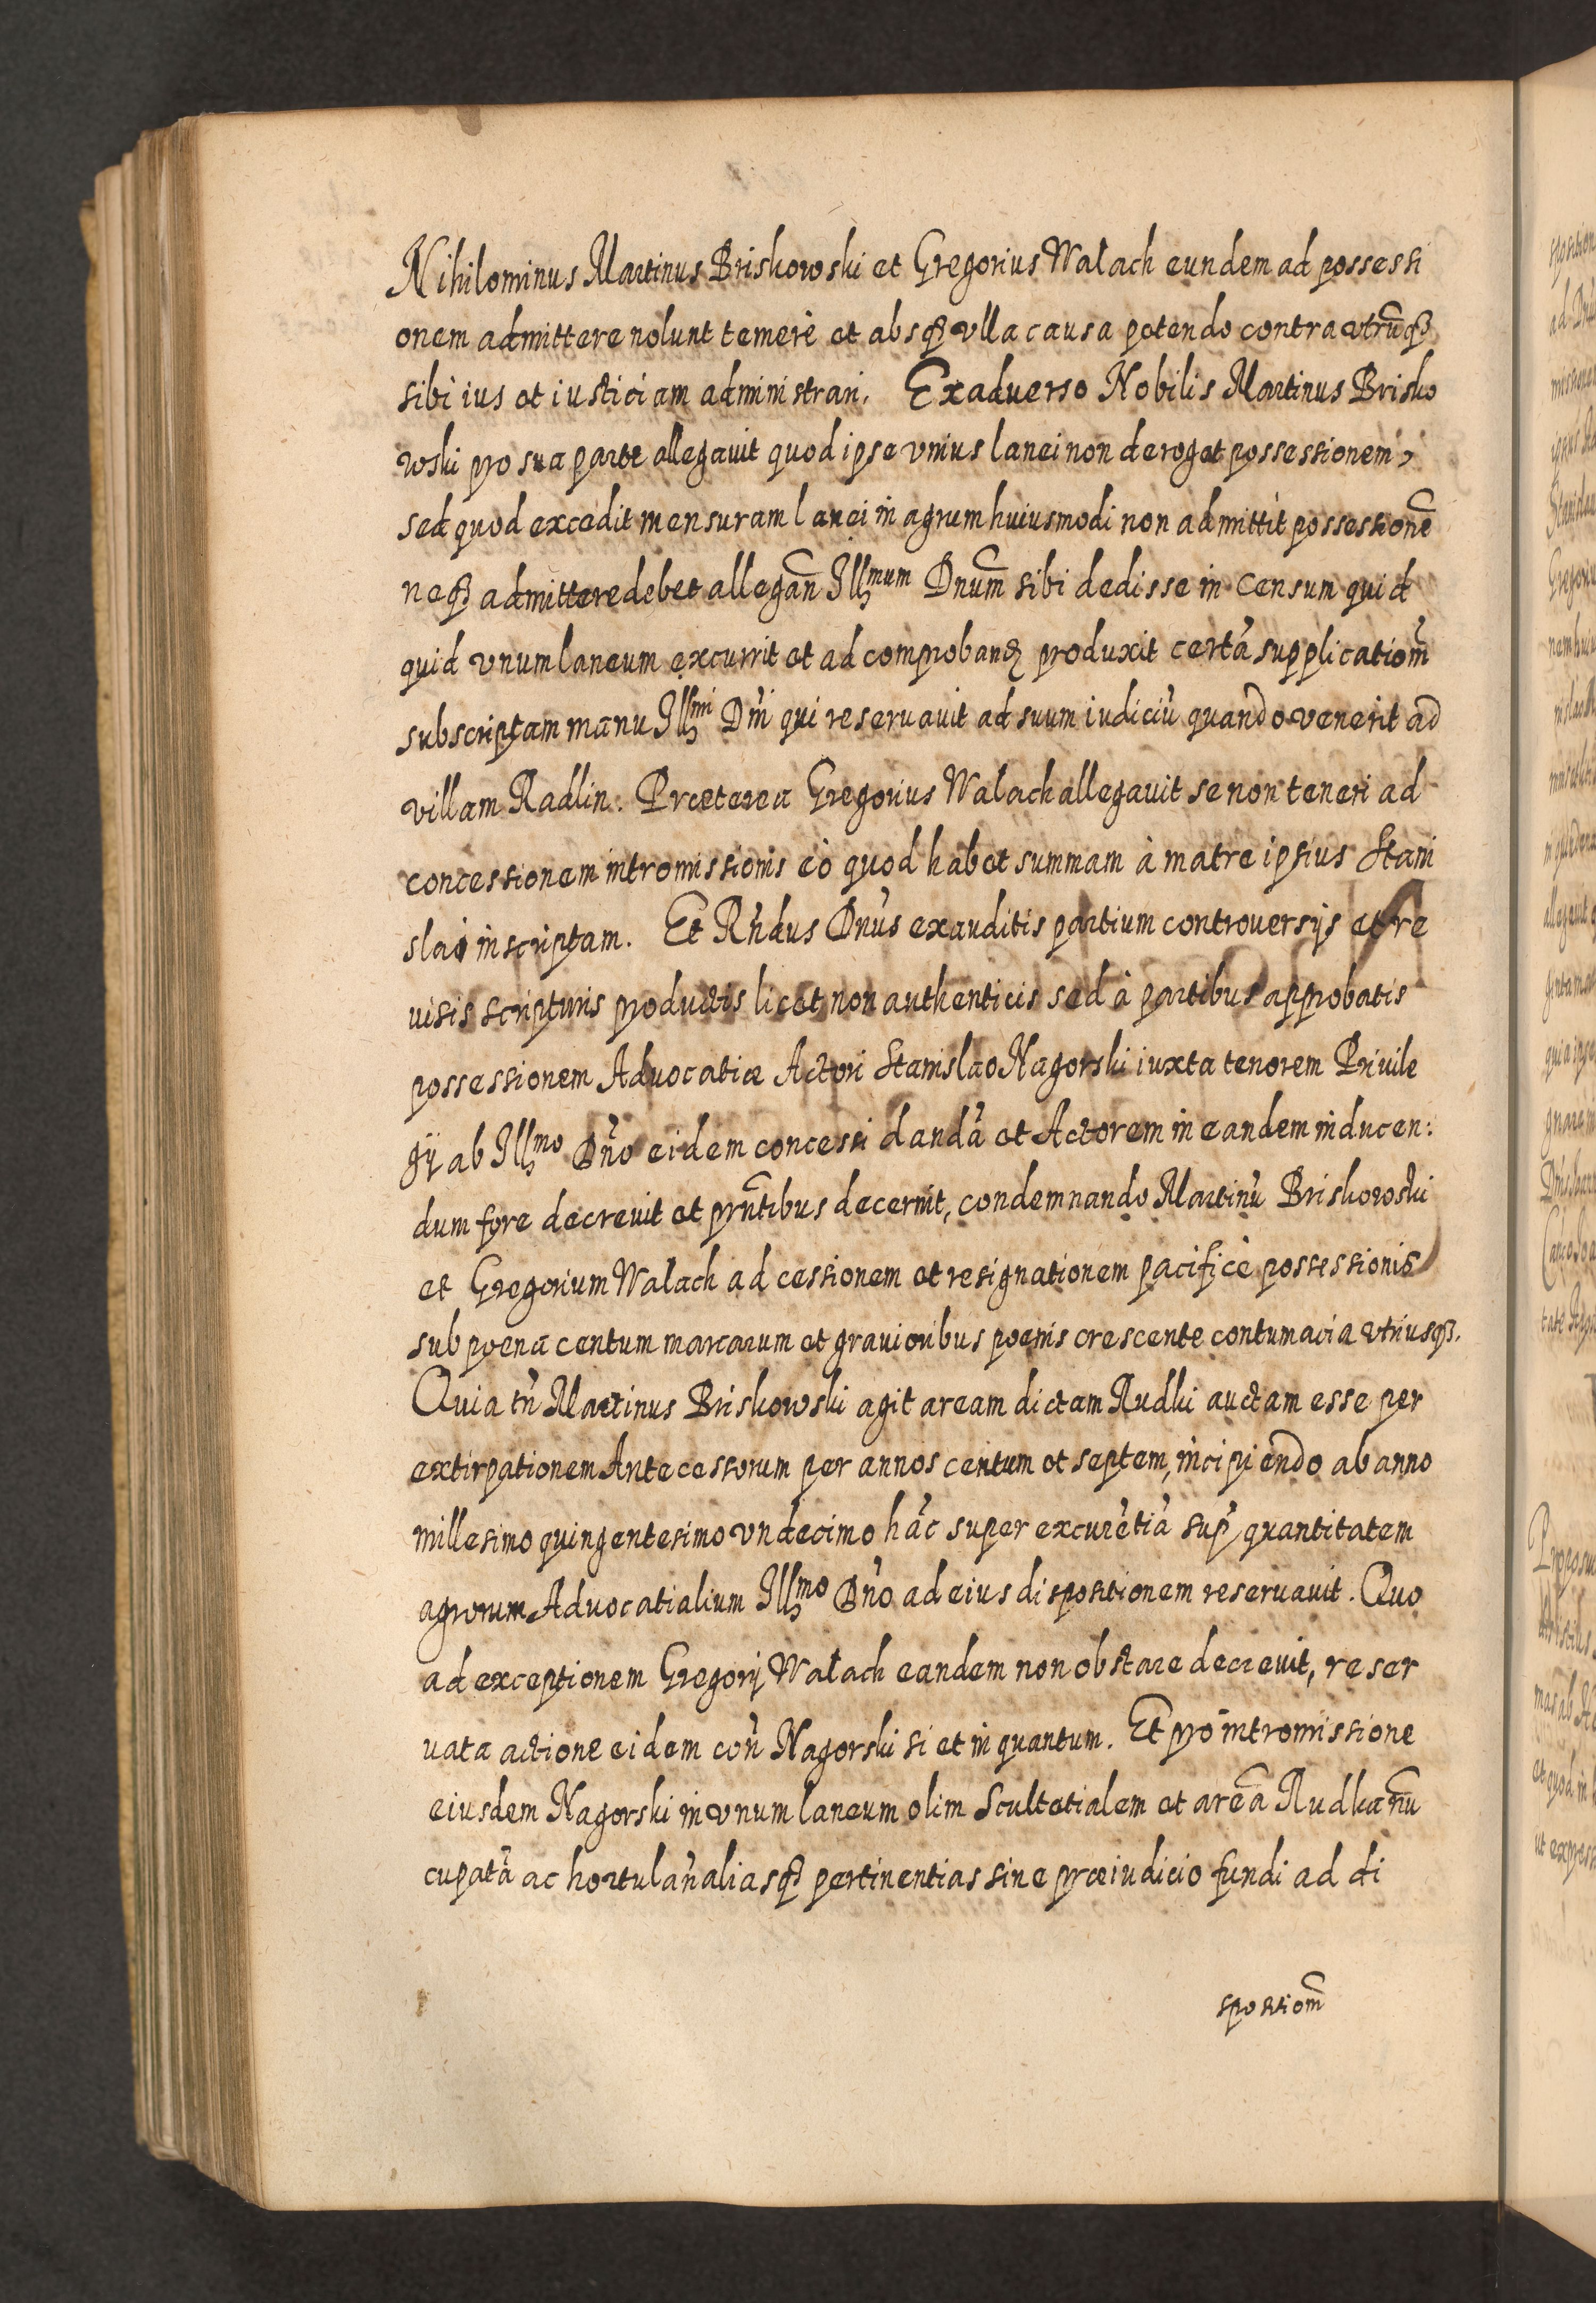 Nihilominus Martinus Briskowski et Gregorius Walach eundem ad possessi
onem admittere nolunt temerè et absqȝ vlla causa petendo contra vtrūqȝ
sibi ius et iusticiam administrari. Ex aduerso Nobilis Martinus Brisko
wski pro sua parte allegauit quod ipse vnius lanei non deroget possessionem,
sed quod excedit mensuram lanei in agrum huiusmodi non admittit possessionē
neqȝ admittere debet allegan̄ Illmum Dnum̄ sibi dedisse in censum quid
quid vnum laneum excurrit et ad comproband produxit certā supplicatiom̄
subscriptam manu Illmi Dni̅ qui reseruauit ad suum iudiciū quando venerit ad
villam Radlin. Præterea Gregorius Walach allegauit se non teneri ad
concessionem intromissionis eò quod habet summam à matre ipsius Stani
slai inscriptam. Et Rn̄dus Dnu̅s exauditis partium controuersijs et re
uisis scripturis productis licet non authenticis sed à partibus approbatis
possessionem Aduocatiæ Actori Stanislao Nagorski iuxta tenorem Priuile
gij ab Illmo Dn̄o eidem concessi dandā et Actorem in eandem inducen:
dum fore decreuit et prn̄tibus decernit, condemnando Martinū Briskowski
et Gregorium Walach ad cessionem et resignationem pacificè possessionis
sub poena centum marcarum et grauioribus poenis crescente contumacia vtriusqȝ.
Quia tn̄ Martinus Briskowski agit aream dictam Rudki auctam esse per
extirpationem Antecessorum per annos centum et septem, incipiendo ab anno
millesimo quingentesimo vndecimo hāc super excurētiā sup̄ quantitatem
agrorum Aduocatialium Illmo Dn̄o ad eius dispositionem reseruauit. Quo
ad exceptionem Gregorij Walach eandem non obstare decreuit, reser
uata actione eidem con̄ Nagorski si et in quantum. Et pro intromissione
eiusdem Nagorski in vnum laneum olim Scultetialem et areā Rudka nū
cupatā ac hortulan̄ aliasqȝ pertinentias sine præiudicio fundi ad di
spositiom̄